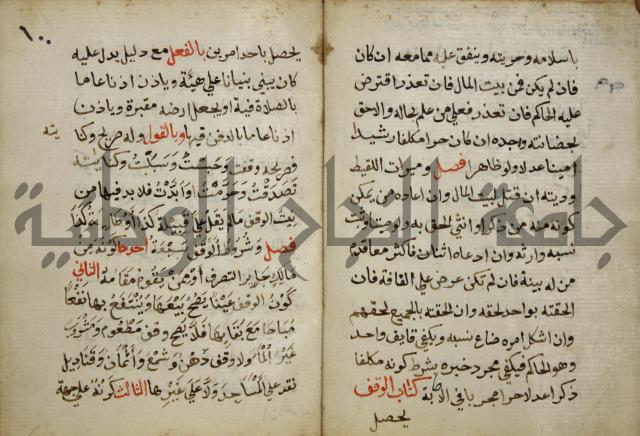 باسلامه وحريته وينفق عليه ممامعه ان كان
فان لم يكن فمن بيت المال فان تعذر اقترض
عليه الحاكم فان تعذر فعلي من علم بحاله والاحق
بحضانته واجده ان كان حرا مكلفا رشيدا
امينا عدلا ولو ظاهرا فصل وميراث اللقيط
وديته ان قتل بيت المال وان ادعاه من يمكن
كونه منه من ذكر او انثى الحق به ولو ميتا وثبت
نسبه وارثه وان ادعاه اثنان فاكثر معا قدم
من له بينة فان لم تكن عرض علي القافة فان
الحقته بواحد لحقه وان الحقته بالجميع لحقهم
وان اشكل امره ضاع نسبه ويكفي قايف واحد
وهو كالحاكم فيكفي مجرد خبره بشرط كونه مكلفا
ذكرا عدلا حرا مجربا في الاصابة كتاب الوقف
يحصل
١٠
يحصل باحد امرين بالفعل مع دليل يدل عليه
كان يبني بنيانا علي هيئة وياذن اذنا عاما
بالصلاة فيه او يجعل ارضه مقبرة وياذن
اذنا عاما بالدفن فيها وبالقول وله صريح وكنا
يته
فصريحه وقفت وحبست وسبلت وكنايته
تصدقت وحرمت وابدت فلا بد فيها من
نية الوقف مالم يقل علي قبيلة كذا او طائفة كذا
فصل وشروط الوقف سبعة احدها كونه من
مالك جايز التصرف او ممن يقوم مقامه الثاني
كون الوقف عينا يصح بيعها وينتفع بها نفعا
مباحا مع بقا عينها فلا يصح وقف مطعوم ومشروب
غير الما ولا وقف دهن وشمع واثمان وقناديل
نقد علي المساجد ولا علي غيرها الثالث كونه علي جهة
جامعة النجاح الوطنية